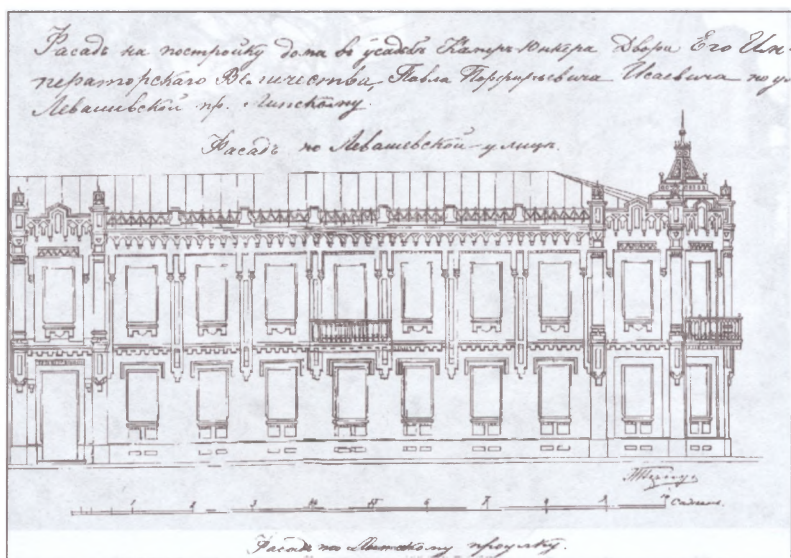 Фасадъ на постройку дома во усадьбѣ Камеръ-Юнкера Двора Его Им-
ператорскаго Величества, Павла Порфирьевича Исаевича по ул
Левашевской пр. Липскому.
Фасадъ по Левашевской улицѣ.
1 2 3 6 Сажень.
Фасадъ по Липскому проулку.